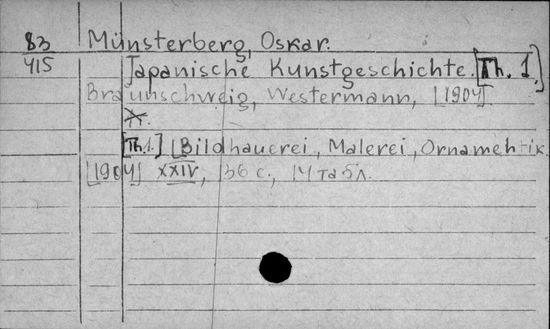 83 Münsterberg, Oskar.
415 Japanische Kunstgeschichte. [Th. 1.]
Braunschweig, Westermann, [1904].
[Th 1.] [Bildhauerei, Malerei, Ornamentik.
[1904] XXIV, 136 с., 14 табл.